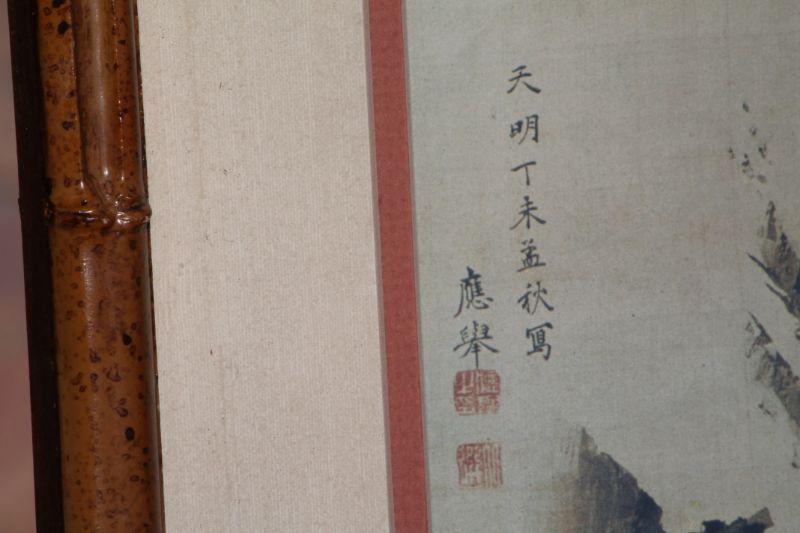 天明丁未孟秋寫
應舉